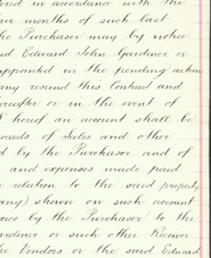 in accordance with the
months of such last
the Purchaser may by notice
Edward John Gardiner or
appointed in the pending action
any resend this Contract and
hereafter or in the event of
hereof an account shall be
of Sales and other
by the Purchaser and of
and expenses made paid
in relation to the said property
any) shewn on such account
by the Purchaser to the
Gardiner or such other Receiver
the Vendors or the said Edward